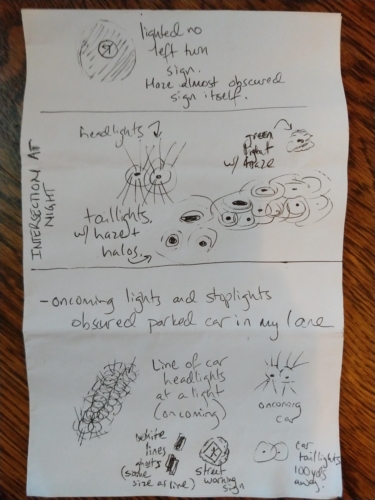 lighted no
left turn
sign.
Haze almost obscured
sign itself.
INTERSECTION AT
NIGHT
headlights
green
light
w/ haze
taillights
w/ haze +
halos
- oncoming lights and stoplights
obsured parked car in my lane
Line of car
headlights
at a light
(oncoming)
oncoming
car
white
lines
ghosts
(same
size as line)
street
working
sign
car
taillights
100 yds
away.